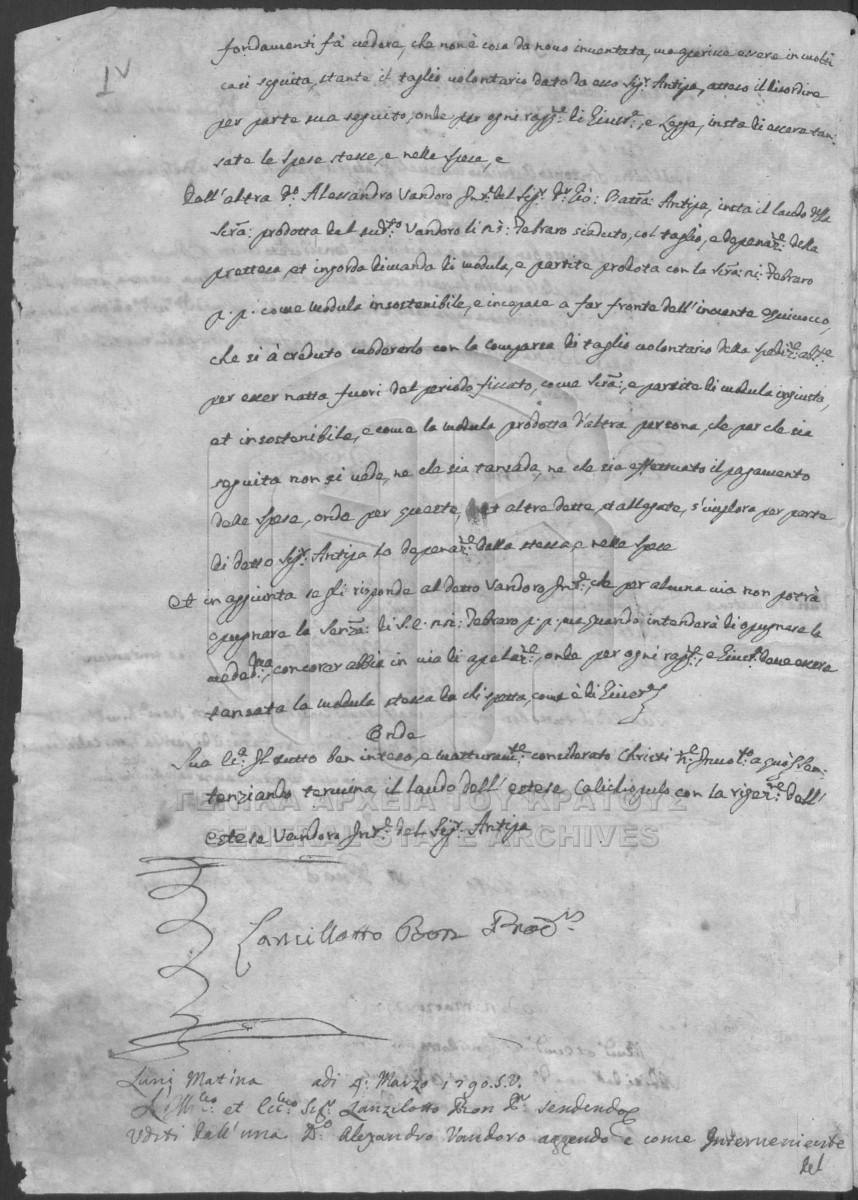 IV
fondamenti fà vedere, che non è cosa da novo inventata, ma essere in molti
casi seguita, stante il taglio volontario dato da esso Sig.r Antipa, atteso il disordine
per parte sua seguito, onde per ogni rag.ne di Giust.a, e Legge, insta di essere tan:
sate le spese stesse, e nelle spese, e
Dall'altra D.o Alessandro Vandoro Int.te del Sig.r D.r Gio: Batta: Antipa, insta il laudo della
Scra: prodotta dal sud.to Vandoro li n.i: Febraro scaduto, col taglio, e depenaz.e: della
prettesa, et ingorda dimanda di modula, e partite prodota con la Scra: ni: Febraro
p. p. come modula insostenibile, e incapace a far fronte dell' equivocco,
che si à creduto con la comparsa di taglio volontario della
per esser natta fuori del periodo fissato, come Scra:, e partite di modula ingiusta,
et insostenibile, e come la modula prodotta d'altra persona, che par che sia
seguita non si vede, ne che sia tansada, ne che sia effettuato il pagamento
delle spese, onde per queste, et altre dette, et allegate, s'implora per parte
di detto Sig.r Antipa la depenaz.e della stessa, e nelle spese
Et in aggiunta se gli risponde al detto Vandoro Int.e, che per alcuna via non potrà
opugnare la Senza: di S.E. n.i: Febraro p. p., ma quando intenderà di opugnare la
medes.ma, concorer abbia in via di apelaz.e, onde per ogni rag.e, e Giust.a deve essere
tansata la modula stessa da chi spetta, come è di Giust.a
Onde
Sua Ecc.a Il tutto ben inteso, e maturam.te considerato Christi N.e Invo.to a quo Sen:
tenziando termina il laudo dell'estese Calichiopulo con la rigez.ne dell'
estese Vandoro Int.e del Sig.r Antipa
Lancillotto Bon Prov.r
ΓΕΝΙΚΑ ΑΡΧΕΙΑ ΤΟΥ ΚΡΑΤΟΥΣ
GENERAL STATE ARCHIVES
Luni Matina adi 4. Marzo 1790. S.V.
L'Ill.mo et Ecc.mo Sig.r Lanzilotto Bon Pr. sendendo
Uditi dall'una D.o Alezandro Vandoro aggendo e come Interveniente
del